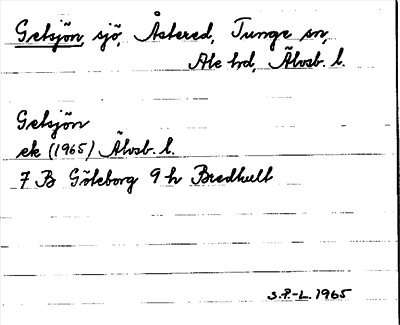 Getsjön, sjö, Åstered, Tunge sn,
Ale hd, Älvsb. l.
Getsjön
ek (1965) Älvsb. l.
7 B Göteborg 9 h Bredhult
S.P.-L. 1965